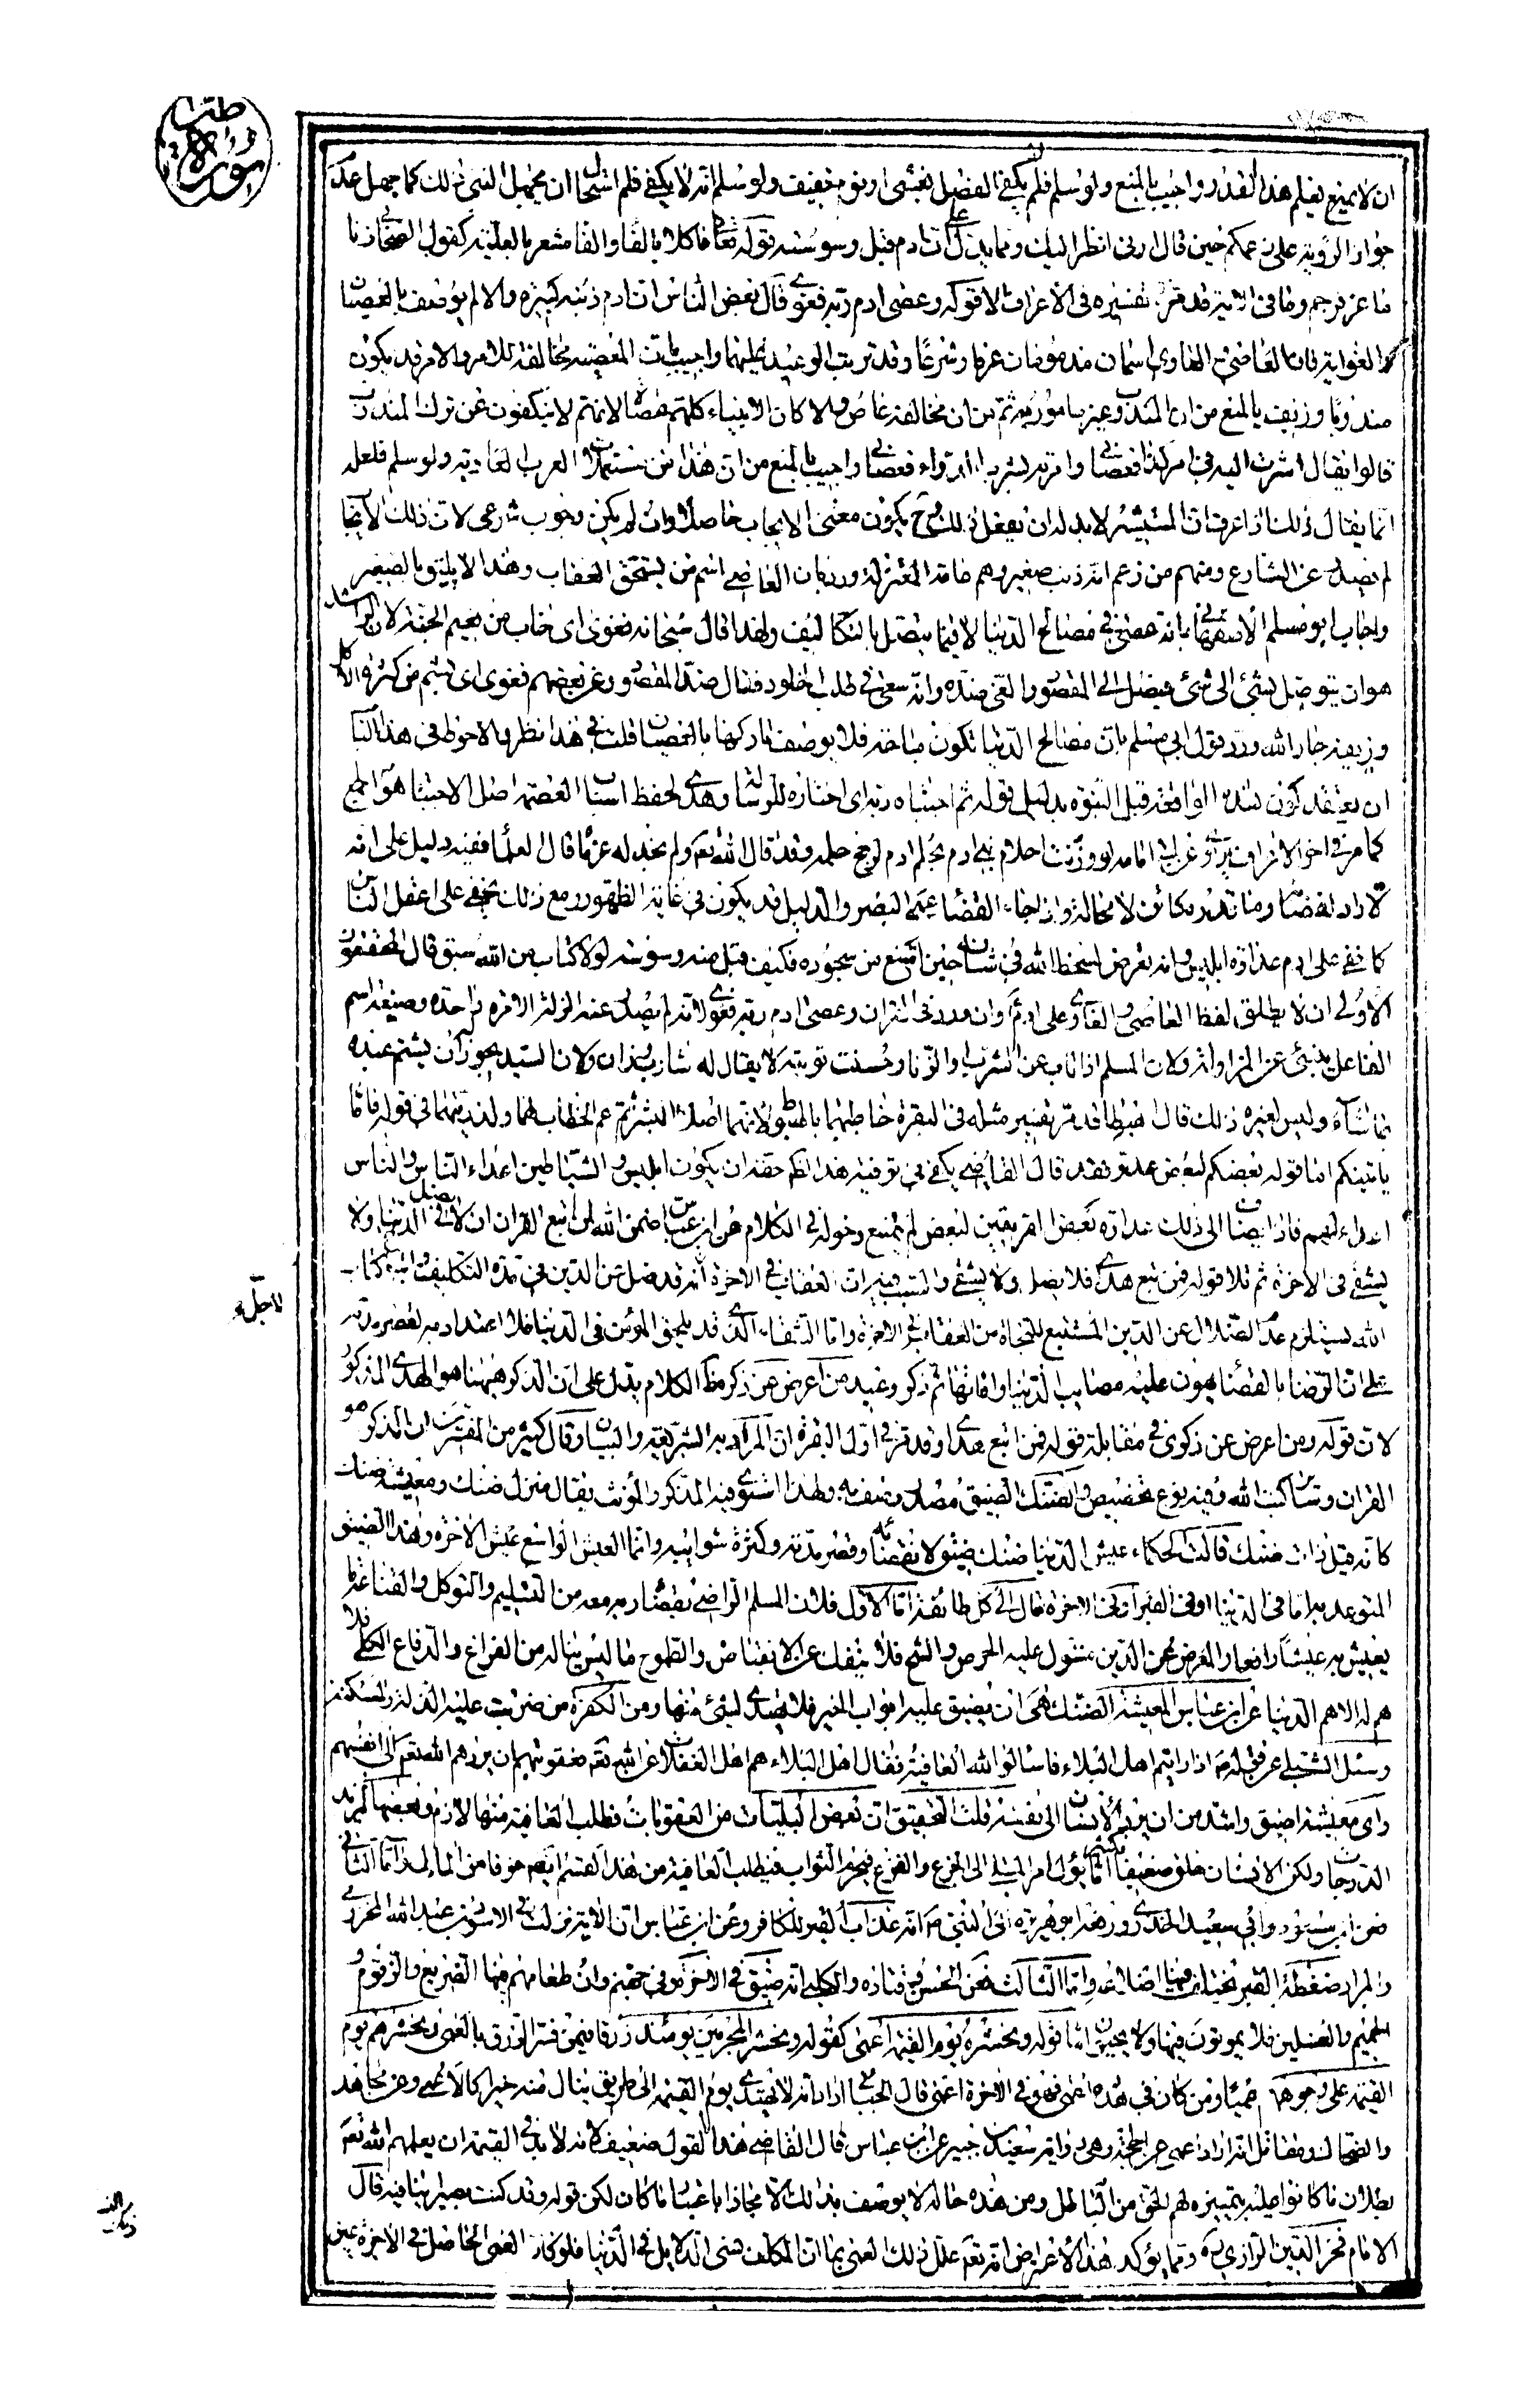 سورة طه
ان لا يمنع بفلم هذا القدر واجيب بالمنع ولو سلم فلم يكفى الفضل بغشى او نوم خفيف ولو سلم انه لا يكفى فلم استحال ان يجهل النبى ذلك كما جهل عدم
جواز الرؤية على زعمكم حين قال ارنى انظر اليك ومما يدل على ان ادم قبل وسوسته قوله تعالى فاكلا بالفا والفا مشعر بالعلية كقول الصحابى زنا
ماعز فرجم وما فى الاية قد مر تفسيره فى الاعراف الا قوله وعصى ادم ربه فغوى قال بعض الناس ان ادم ذنبه كبيرة والا لم يوصف بالعصيان
والغواية فان العاصى والغاوى اسمان مذمومان عرفا وشرعا وقد ترتب الوعيد عليهما واجيب بان المعصية مخالفة للامر والامر قد يكون
مندوبا وزيف بالمنع من ان المندوب غير مامور به ثم من ان مخالفه عاص والا كان الانبياء كلهم عصاة لانهم لا ينفكون عن ترك المندوب
قالوا يقال اشرت اليه فى امر كذا فعصانى وامرته بشرب الدواء فعصانى واجيب بالمنع من ان هذا من مستعملات العرب العاربة ولو سلم فلعله
انما يقال ذلك اذا عرفت ان المستشير لا بد له ان يفعل ذلك وح يكون معنى الايجاب حاصلا وان لم يكن وجوب شرعى لان ذلك الايجاب
لم يصدر عن الشارع ومنهم من زعم انه ذنب صغير وهم عامة المعتزلة ورد بان العاصى اسم من يستحق العقاب وهذا لا يليق بالصغير
واجاب ابو مسلم الاصفهانى بانه عصى فى مصالح الدنيا لا فيما يتصل بالتكاليف ولهذا قال سبحانه فغوى اى خاب من نعيم الجنة لان الرشد
هو ان يتوصل بشئ الى شئ فيصل الى المقصود والغى ضده وانه سعى فى طلب الخلود فنال ضد المقصود وعن بعضهم فغوى اى بشم من كثرة الاكل
وزيفه جار الله ورد قول ابى مسلم بان مصالح الدنيا تكون مباحة فلا يوصف تاركها بالعصيان قلت فى هذا نظر والاحوط فى هذا الباب
ان يعتقد كون هذه الواقعة قبل النبوة بدليل قوله ثم اجتباه ربه اى اختاره للرسالة وهدى لحفظ اسباب العصمة اصل الاجتباء هو الجمع
كما مر فى اخر الاعراف وعن ابى امامة لو وزنت احلام بنى ادم بحلم ادم لرجح حلمه وقد قال الله تعالى ولم نجد له عزما قال العلماء ففيه دليل على انه
لا راد لقضائه وما قدر كائن لا محالة واذا جاء القضا عمى البصر والدليل قد يكون فى غاية الظهور ومع ذلك يخفى على اعقل الناس
كما خفى على ادم عداوة ابليس وانه تعرض لسخط الله فى شانه حين امتنع من سجوده فكيف قبل منه وسوسته لولا كتاب من الله سبق قال المحققون
الاولى ان لا يطلق لفظ العاصى والغاوى على ادم وان ورد فى القران وعصى ادم ربه فغوى لانه لم يصدر عنه الزلة الا مرة واحدة وصيغة اسم
الفاعل ينبئ عن المزاولة ولان المسلم اذا تاب عن الشرب والزنا وحسنت توبته لا يقال له شارب وزان ولان السيد يجوز ان يشتم عبده
بما شاء وليس لغيره ذلك قال اهبطا قد مر تفسير مثله فى البقرة خاطبهما بالهبوط لانهما اصلا البشر ثم عم الخطاب لهما ولذريتهما فى قوله فاما
ياتينكم اما قوله بعضكم لبعض عدو فقد قال القاضى يكفى فى توفية هذا الظم حقه ان يكون ابليس والشياطين اعداء الناس والناس
اعداء لهم فاذا انضاف الى ذلك عداوة بعض الفريقين لبعض لم يمتنع دخوله فى الكلام عن ابن عباس ضمن الله لمن اتبع القران ان لا يضل فى الدنيا ولا
يشقى فى الاخرة ثم تلا قوله فمن اتبع هداى فلا يضل ولا يشقى والسبب فيه ان العقاب فى الاخرة انه قد ضل عن الدين فى هذه التكليف واتباع كتاب
الله يستلزم عدم الضلال عن الدين المستتبع للنجاة من العقاب فى الاخرة واما الشقاء الذى قد يلحق المؤمن فى الدنيا فلا اعتداد به لقصر مدته
على ان الرضا بالقضاء يهون عليه مصايب الدنيا وافاتها ثم ذكر وعيد من اعرض عن ذكره نظم الكلام يدل على ان الذكر ههنا هو الهدى المذكور
لان قوله ومن اعرض عن ذكرى فى مقابلة قوله فمن اتبع هداى وقد مر فى اول البقرة ان المراد به الشريعة والبيان وقال كثير من المفسرين ان الذكر هو
القران وسائر كتب الله وفيه نوع تخصيص والضنك الضيق مصدر وصف به ولهذا استوى فيه المذكر والمؤنث يقال منزل ضنك ومعيشة ضنك
كانه قيل ذات ضنك قالت الحكماء عيش الدنيا ضنك ضيق لانقضائه وقصر مدته وكثرة شوائبه وانما العيش الواسع عيش الاخرة وهذا الضيق
المتوعد به اما فى الدنيا او فى القبر او فى الاخرة قال الى كل طائفة اما الاول فلان المسلم الراضى بقضاء ربه معه من التسليم والتوكل والقناعة ما
يعيش به عيشا رافعا والمعرض عن الدين مستول عليه الحرص والشح فلا ينفك عن الانقباض والطموح الى ما ليس يناله من الفراغ والدفاع الكلى فلا
هم له الا هم الدنيا عن ابن عباس المعيشة الضنك هى ان يضيق عليه ابواب الخير فلا يهتدى لشئ منها ومن الكفرة من ضربت عليه الذلة والمسكنة
وسئل الشبلى عن قوله ص اذا رايتم اهل البلاء فاسألوا الله العافية فقال اهل البلاء هم اهل الغفلات عن الله تعم فعقوبتهم ان يردهم الله تعم الى انفسهم
واى معيشة اضيق واشد من ان يرد الانسان الى نفسه قلت التحقيق ان بعض البليات من العقوبات فطلب العافية منها لازم وبعضها لمزيد
الدرجات ولكن الانسان خلق ضعيفا انما يؤل امر المبتلى الى الجزع والفزع فيحرم الثواب فيطلب العافية من هذا القسم ايضا خوفا من المال هذا اما الثانى
فعن ابن مسعود وابى سعيد الخدرى ورفعه ابو هريرة الى النبى ص انه عذاب القبر للكافر وعن ابن عباس ان الاية نزلت فى الاسود بن عبد الله المخزومى
والمراد ضغطة القبر تختلف فيها اضلاعه واما الثالث فعن الحسن وقتادة والكلبى انه ضيق فى الاخرة فى جهنم وان طعامهم فيها الضريع والزقوم
الحميم والغسلين فلا يموتون فيها ولا يحيون اما قوله ونحشره يوم القيمة اعمى كقوله ونحشر المجرمين يومئذ زرقا فيمن فسر الزرق بالعمى ونحشرهم يوم
القيمة على وجوههم عميا ومن كان فى هذه اعمى فهو فى الاخرة اعمى قال الجبائى اراد انه لا يهتدى يوم القيمة الى طريق ينال منه خيرا كالاعمى وعن مجاهد
والضحاك ومقاتل انه اراد اعمى عن الحجة وهى رواية سعيد بن جبير عن ابن عباس قال القاضى هذا القول ضعيف لانه لا بد فى القيمة ان يعلمهم الله تعم
بطلان ما كانوا عليه بتمييزه لهم الحق من الباطل ومن هذه حاله لا يوصف بذلك الا مجازا باعتبار ما كان لكن قوله وقد كنت بصيرا ينافيه قال
الامام فخر الدين الرازى ره ومما يؤكد هذا الاعتراض انه تعم علل ذلك العمى بما ان المكلف نسى الدلايل فى الدنيا فلو كان العمى الحاصل فى الاخرة عين